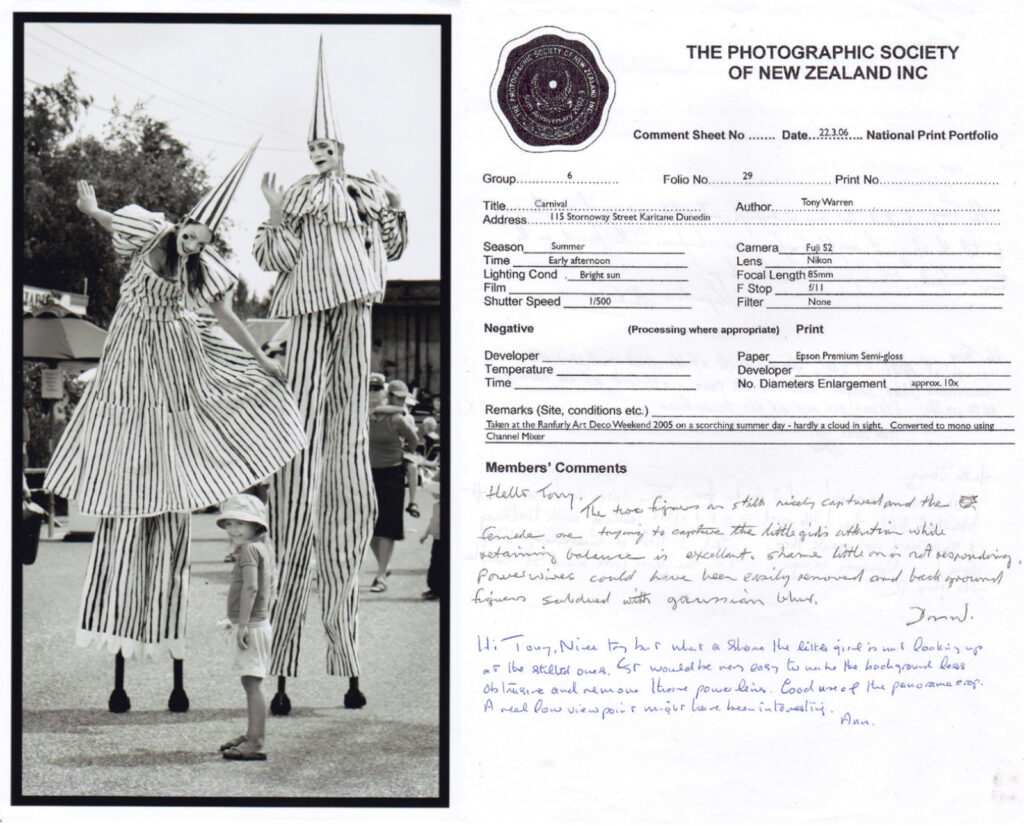 THE PHOTOGRAPHIC SOCIETY OF NEW ZEALAND INC
50th Anniversary
THE PHOTOGRAPHIC SOCIETY
OF NEW ZEALAND INC
Comment Sheet No ....... Date...22.3.06... National Print Portfolio
Group 6 Folio No. 29 Print No.
Title Carnival Author Tony Warren
Address 115 Stornoway Street Karitane Dunedin
Season Summer Camera Fuji S2
Time Early afternoon Lens Nikon
Lighting Cond . Bright sun Focal Length 85mm
Film F Stop f/11
Shutter Speed 1/500 Filter None
Negative (Processing where appropriate) Print
Developer Paper Epson Premium Semi-gloss
Temperature Developer
Time No. Diameters Enlargement approx. 10x
Remarks (Site, conditions etc.)
Taken at the Ranfurly Art Deco Weekend 2005 on a scorching summer day - hardly a cloud in sight. Converted to mono using
Channel Mixer
Members' Comments
Hello Tony.
The two figures on stilts nicely captured and the
female one trying to capture the little girls attention while
retaining balance is excellent. Shame little one is not responding.
Powerwires could have been easily removed and background
figures subdued with gaussian blur.
Hi Tony, Nice try but what a shame the little girl is not looking up
at the stilted ones. It would be very easy to make the background less
obtrusive and remove those power lines. Good use of the panorama crop.
A real low viewpoint might have been interesting.
Ann.